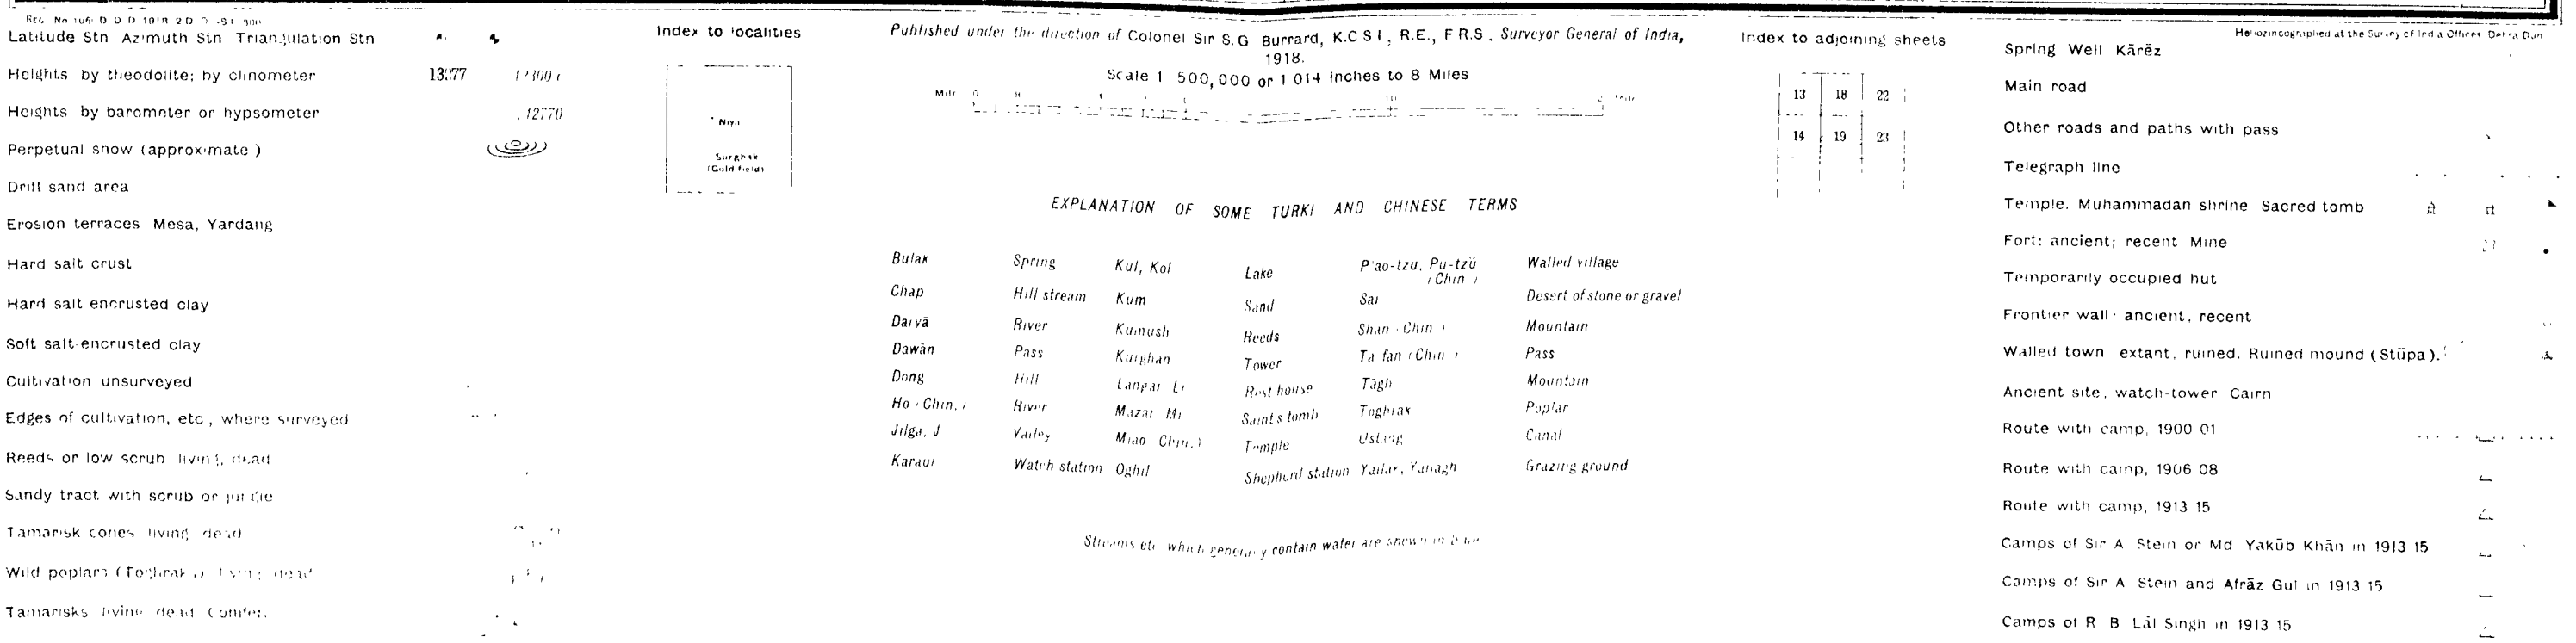 Latitude Stn Azimuth Stn Triangulation Stn
Heights by theodolite; by clinometer 13277 12300 c
Heights by barometer or hypsometer .12770
Perpetual snow (approximate)
Drift sand area
Erosion terraces Mesa, Yardang
Hard salt crust
Hard salt encrusted clay
Soft salt-encrusted clay
Cultivation unsurveyed
Edges of cultivation, etc, where surveyed
Reeds or low scrub living, dead
Sandy tract with scrub or jungle
Tamarisk cones living dead
Wild poplars (Toghraks) living dead
Tamarisks living dead Conifer.
Index to localities
Niya
Surghak
(Gold field)
Published under the direction of Colonel Sir S.G Burrard, K.C S I, R.E., F R.S. Surveyor General of India,
1918.
Scale 1 500,000 or 1 014 Inches to 8 Miles
EXPLANATION OF SOME TURKI AND CHINESE TERMS
Bulak Spring Kul, Kol Lake P'ao-tzu, Pu-tzŭ (Chin) Walled village
Chap Hill stream Kum Sand Sai Desert of stone or gravel
Daryā River Kumush Reeds Shan (Chin) Mountain
Dawān Pass Kurghan Tower Ta fan (Chin) Pass
Dong Hill Langar Lr Rest house Tāgh Mountain
Ho (Chin.) River Mazar Mr Saint s tomb Toghrak Poplar
Jilga, J Valley Miao Chin.) Temple Ustang Canal
Karaul Watch station Oghil Shepherd station Yailak, Yanagh Grazing ground
Streams etc which generally contain water are shewn in blue
Index to adjoining sheets
13 18 22
14 19 23
Heliozincographed at the Survey of India Offices Dehra Dun
Spring Well Kārēz
Main road
Other roads and paths with pass
Telegraph line
Temple. Muhammadan shrine Sacred tomb
Fort: ancient; recent Mine
Temporarily occupied hut
Frontier wall · ancient, recent
Walled town extant, ruined. Ruined mound (Stūpa).
Ancient site, watch-tower Cairn
Route with camp, 1900 01
Route with camp, 1906 08
Route with camp, 1913 15
Camps of Sir A Stein or Md Yakūb Khān in 1913 15
Camps of Sir A Stein and Afrāz Gul in 1913 15
Camps of R B Lāl Singh in 1913 15